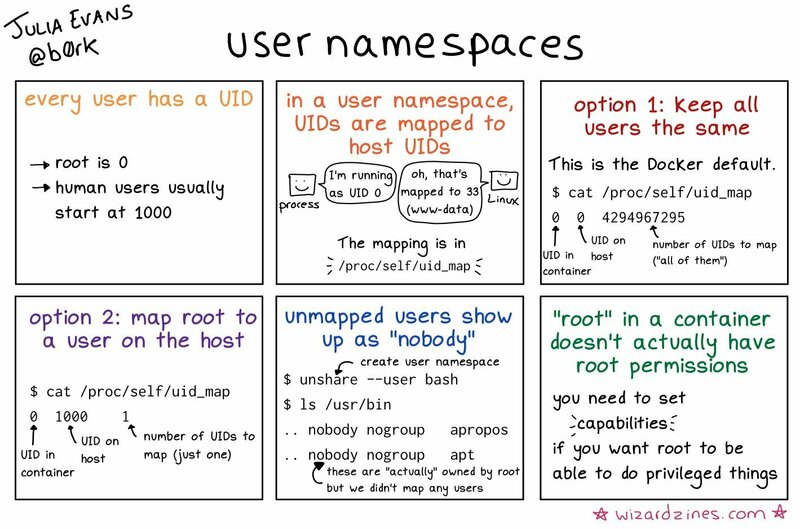 JULIA EVANS
@b0rk
user namespaces
every user has a UID
→ root is 0
→ human users usually
start at 1000
in a user namespace,
UIDs are mapped to
host UIDs
I'm running
as UID 0
process
oh, that's
mapped to 33
(www-data)
Linux
The mapping is in
/proc/self/uid_map
option 1: Keep all
users the same
This is the Docker default.
$ cat /proc/self/uid_map
0 0 4294967295
UID in
container
UID on
host
number of UIDs to map
("all of them")
option 2: map root to
a user on the host
$ cat /proc/self/uid_map
0 1000 1
UID in
container
UID on
host
number of UIDs to
map (just one)
unmapped users show
up as "nobody"
create user namespace
$ unshare --user bash
$ ls /usr/bin
.. nobody nogroup apropos
.. nobody nogroup apt
these are "actually" owned by root
but we didn't map any users
"root" in a container
doesn't actually have
root permissions
you need to set
capabilities
if you want root to be
able to do privileged things
☆ wizardzines.com ☆